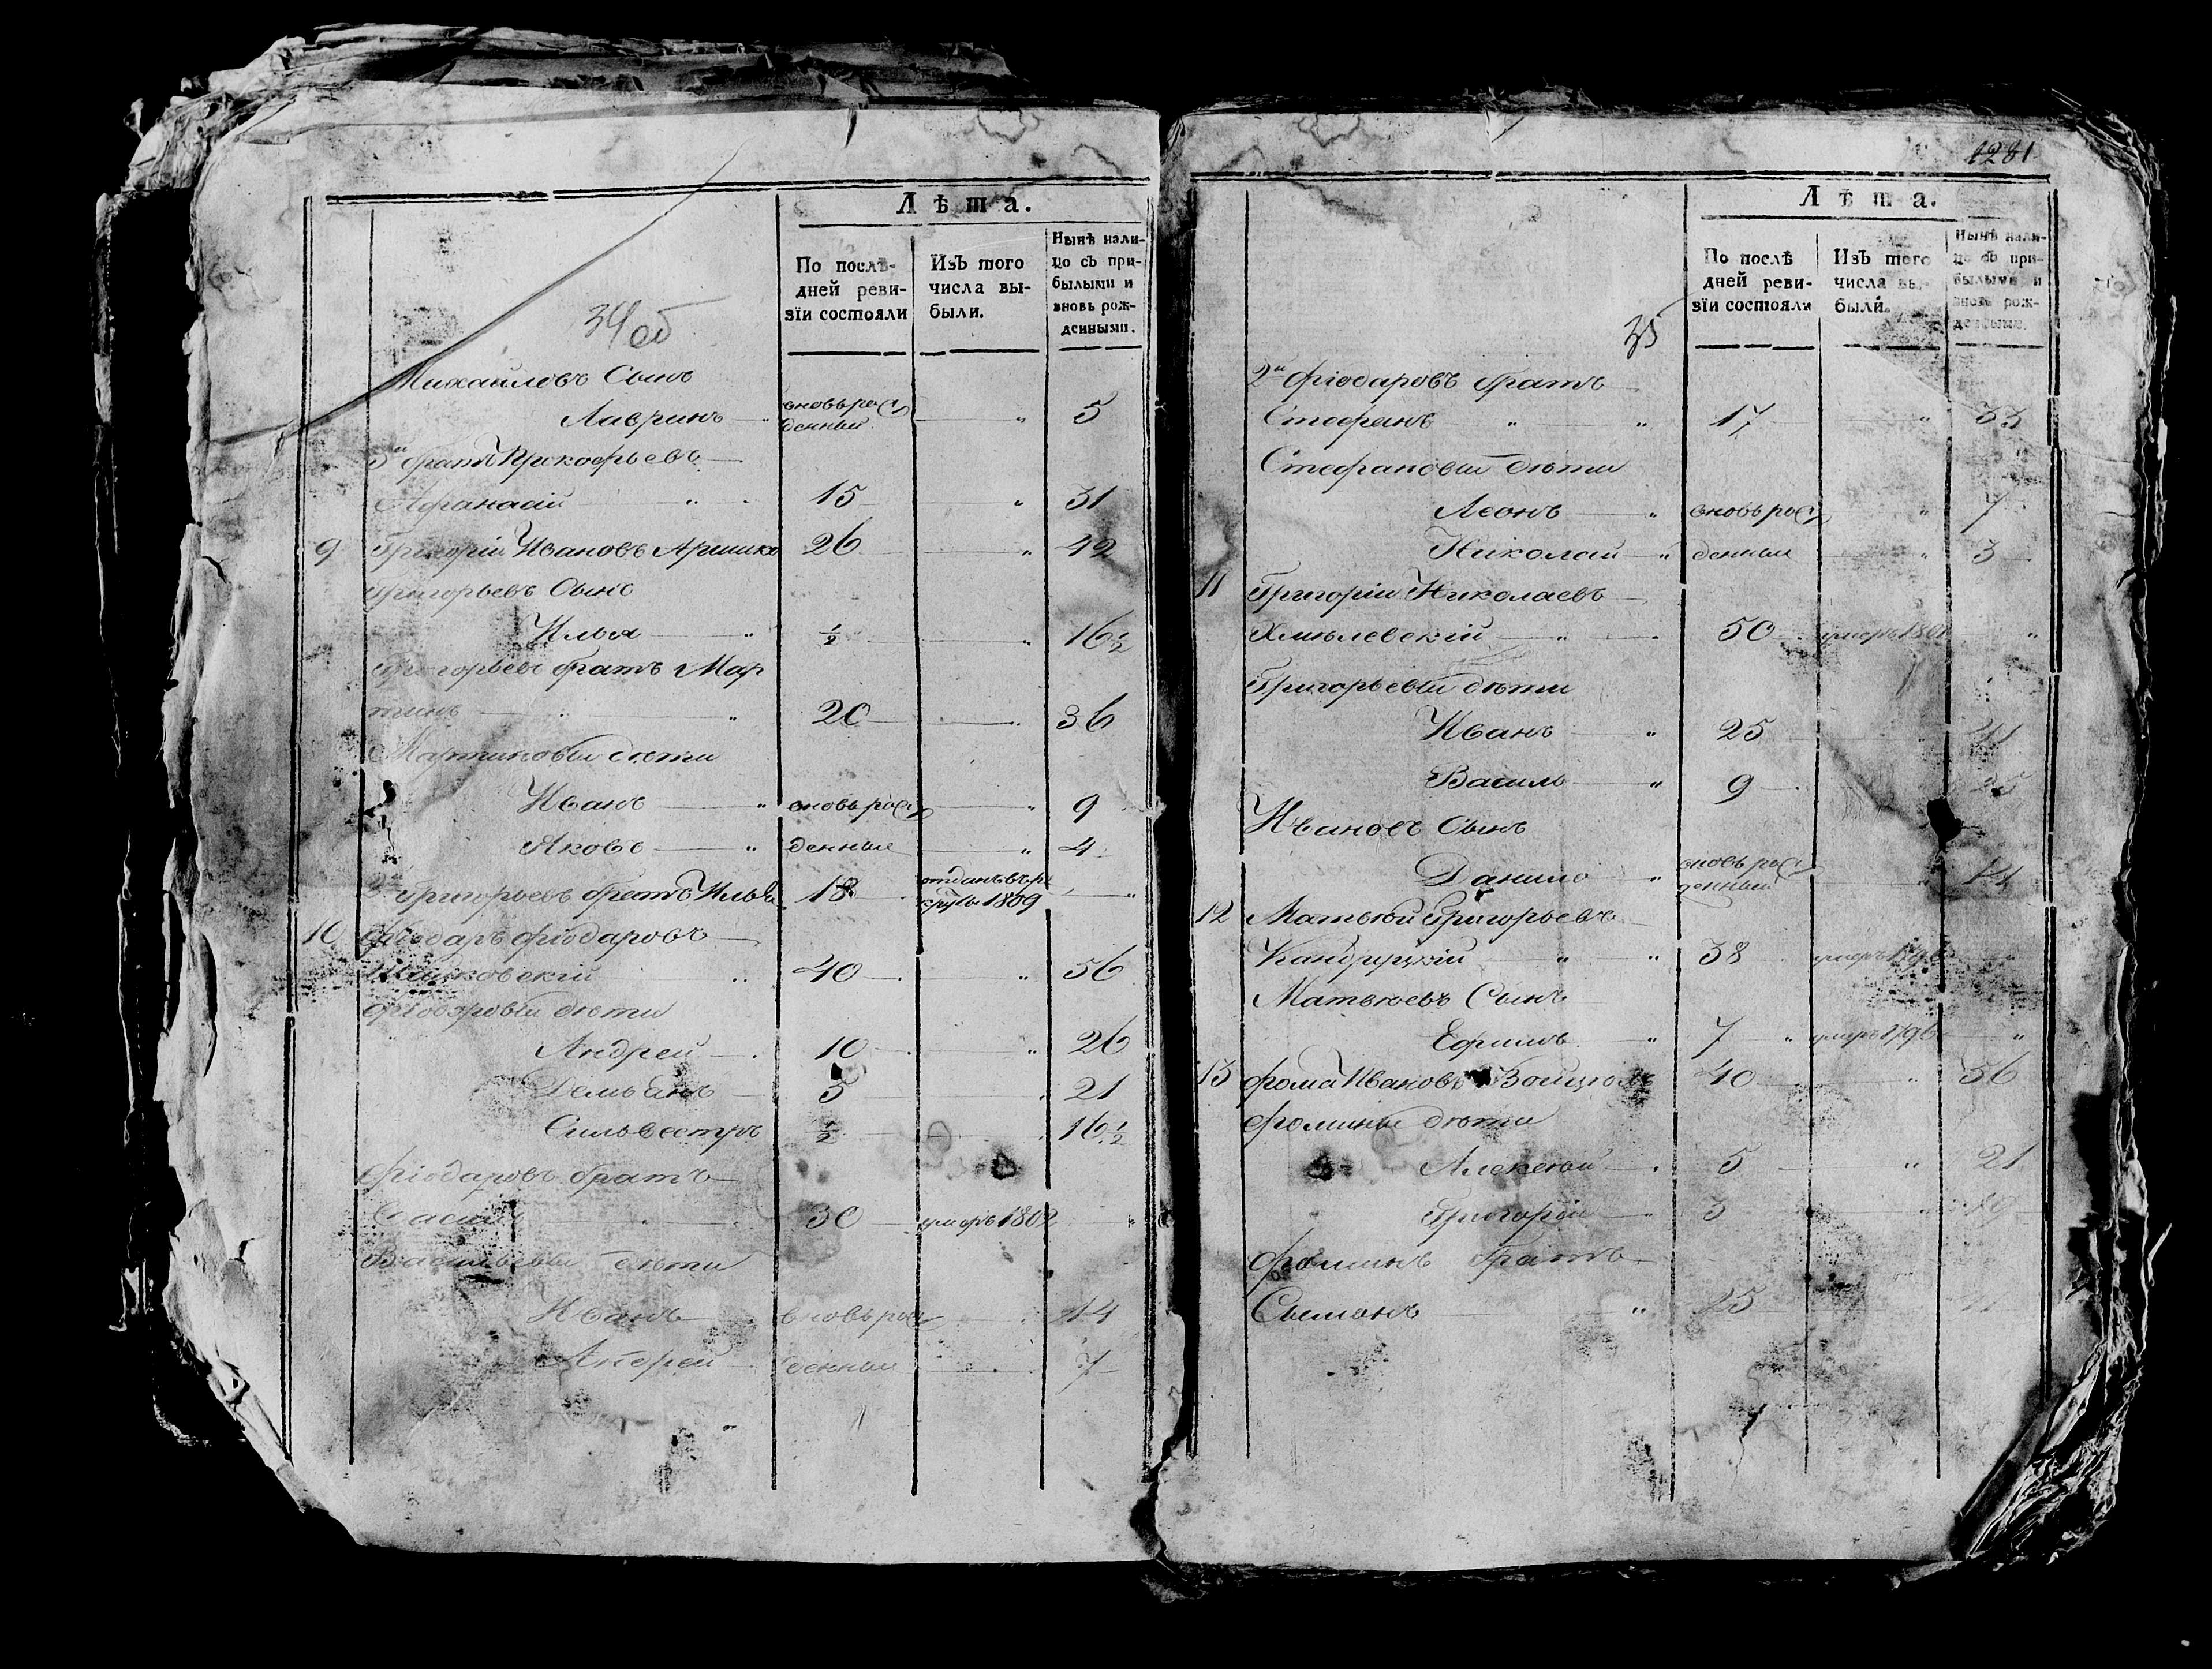 Лѣта.
По послѣ-
дней реви-
зїи состояли
Изъ того
числа вы-
были.
Нынѣ нали-
цо съ при-
былыми и
вновь рож-
денными.
34 об
Михайловъ Сынъ
Лавринъ вновьрож 5
денный
3й братъ Прикофьевъ
Афанасій 15 31
9 Григорій Ивановъ 26 42
Григорьевъ Сынъ
Илья ½ 16½
Григорьевъ братъ Мар
тинъ 20 36
Мартиновы дѣти
Иванъ вновьрож 9
Яковъ денные 4
Григорьевъ братъ Илья 18 отданъ въ ре
круты 1809
10 Фіодаръ Фіодаровъ
40 56
Фіодаровы дѣти
Андрей 10 26
Демьянъ 5 21
Сильвестръ ½ 16½
Фіодаровъ братъ
Василь 30 умеръ 1802
Васильевы дѣти
Иванъ вновьрож 14
Андрей денные 7
1281
Лѣта.
По послѣ
дней реви-
зїи состояли
Изъ того
числа вы-
были.
Нынѣ нали-
цо съ при-
былыми и
вновь рож-
денными.
35
2й Фіодаровъ братъ
Стефанъ 17 33
Стефановы дѣти
Леонъ вновьрож 7
Николай денные 3
11 Григорій Николаевъ
Хмѣлевскій 50 умеръ 1801
Григорьевы дѣти
Иванъ 25 41
Василь 9 25
Ивановъ Сынъ
Данило вновьрож 14
денный
12 Матвѣй Григорьевъ
38 умеръ 1796
Матвѣевъ Сынъ
Ефимъ 7 умеръ 1796
13 Фома Ивановъ 40 56
Фомины дѣти
Алексѣй 5 21
Григорій 3
Фоминъ братъ
Сымонъ 25